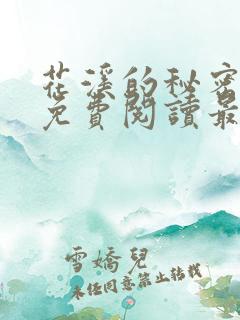 花溪的秘密
免費閱讀最
雪嬌兒
未經同意禁止轉載